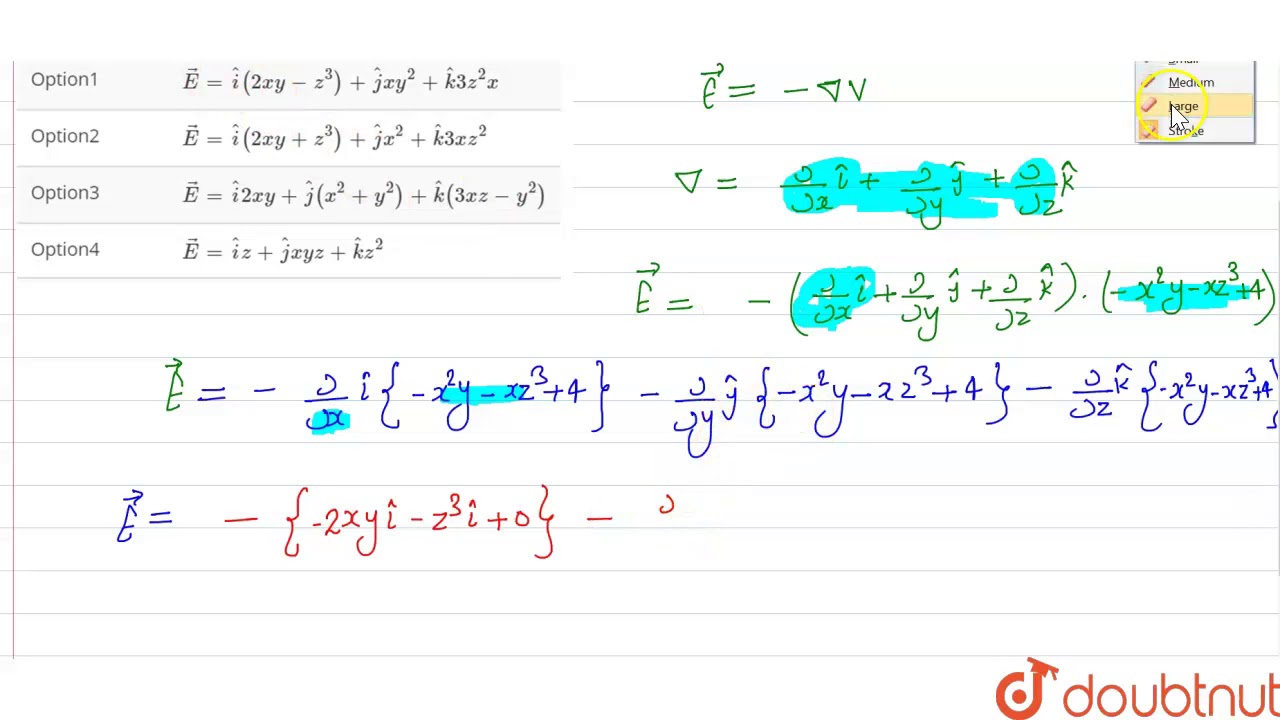 Option1 $\vec{E} = \hat{i}(2xy - z^3) + \hat{j}xy^2 + \hat{k}3z^2x$
Option2 $\vec{E} = \hat{i}(2xy + z^3) + \hat{j}x^2 + \hat{k}3xz^2$
Option3 $\vec{E} = \hat{i}2xy + \hat{j}(x^2 + y^2) + \hat{k}(3xz - y^2)$
Option4 $\vec{E} = \hat{i}z + \hat{j}xyz + \hat{k}z^2$
Small
Medium
Large
Stroke
$\vec{E} = -\nabla V$
$\nabla = \frac{\partial}{\partial x}\hat{i} + \frac{\partial}{\partial y}\hat{j} + \frac{\partial}{\partial z}\hat{k}$
$\vec{E} = -(\frac{\partial}{\partial x}\hat{i} + \frac{\partial}{\partial y}\hat{j} + \frac{\partial}{\partial z}\hat{k}).(-x^2y - xz^3 + 4)$
$\vec{E} = -\frac{\partial}{\partial x}\hat{i}\{-x^2y - xz^3 + 4\} - \frac{\partial}{\partial y}\hat{j}\{-x^2y - xz^3 + 4\} - \frac{\partial}{\partial z}\hat{k}\{-x^2y - xz^3 + 4\}$
$\vec{E} = -\{-2xy\hat{i} - z^3\hat{i} + 0\} -$
doubtnut